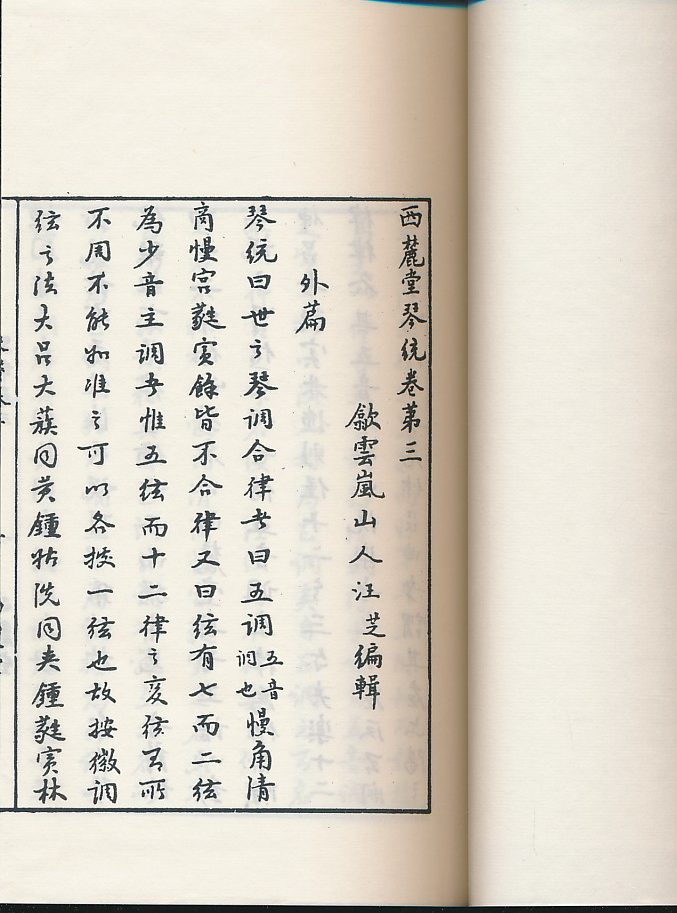 西麓堂琴统卷第三
歙雲嵐山人汪芝編輯
外篇
琴统曰世之琴調合律者曰五調五音調也慢角清
商慢宮蕤賓餘皆不合律又曰絃有七而二絃
為少音主調者惟五絃而十二律之变絃有所
不周不能如准之可以各按一絃也故按徽調
絃之法大吕大蔟同黄鍾姑洗同夹鍾蕤賓林